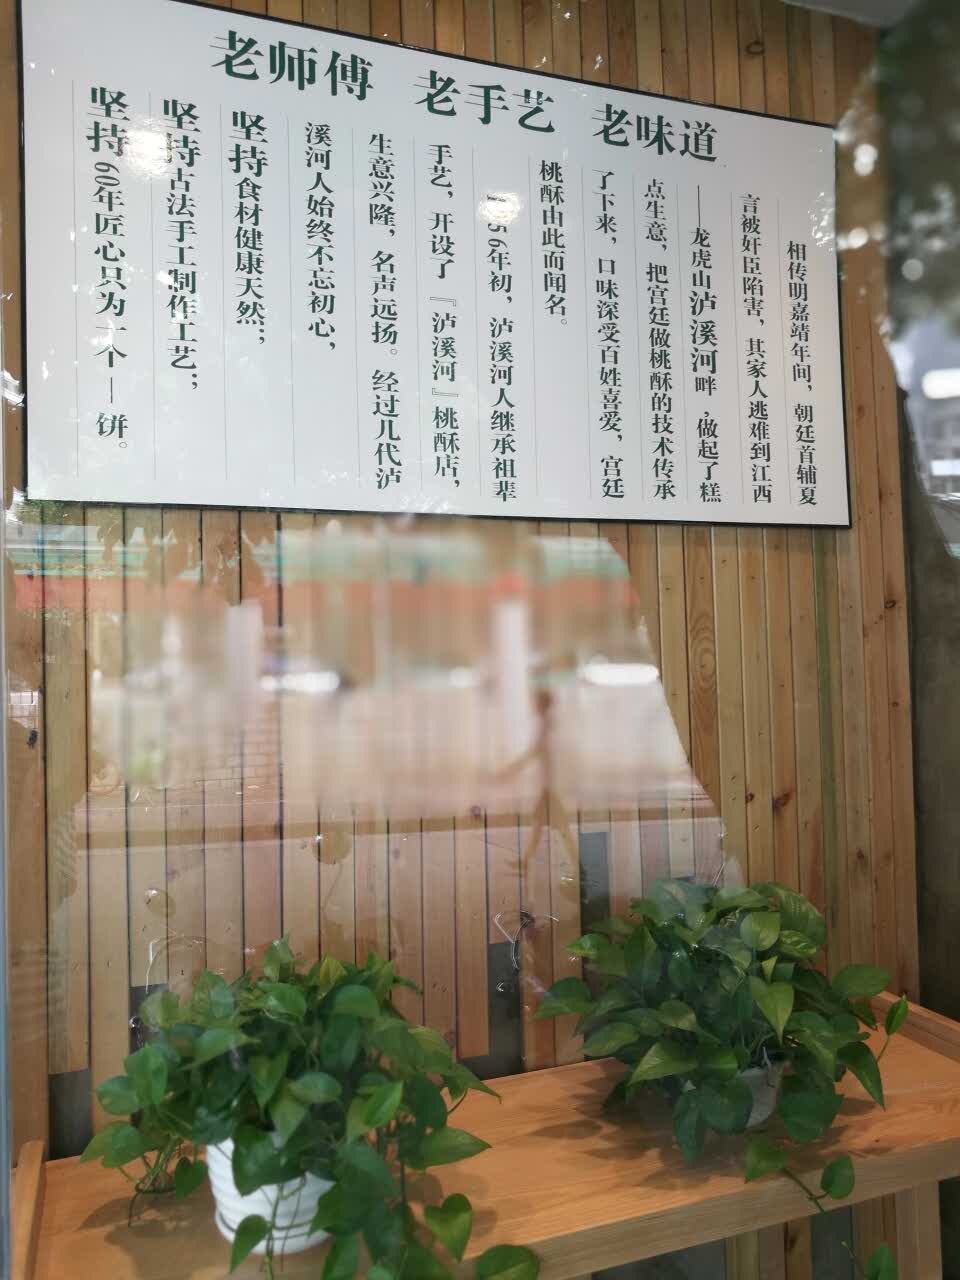 老师傅 老手艺 老味道
相传明嘉靖年间，朝廷首辅夏
言被奸臣陷害，其家人逃难到江西
——龙虎山泸溪河畔，做起了糕
点生意，把宫廷做桃酥的技术传承
了下来，口味深受百姓喜爱，宫廷
桃酥由此而闻名。
56年初，泸溪河人继承祖辈
手艺，开设了『泸溪河』桃酥店，
生意兴隆，名声远扬。经过几代泸
溪河人始终不忘初心，
坚持食材健康天然；
坚持古法手工制作工艺；
坚持60年匠心只为一个—饼。